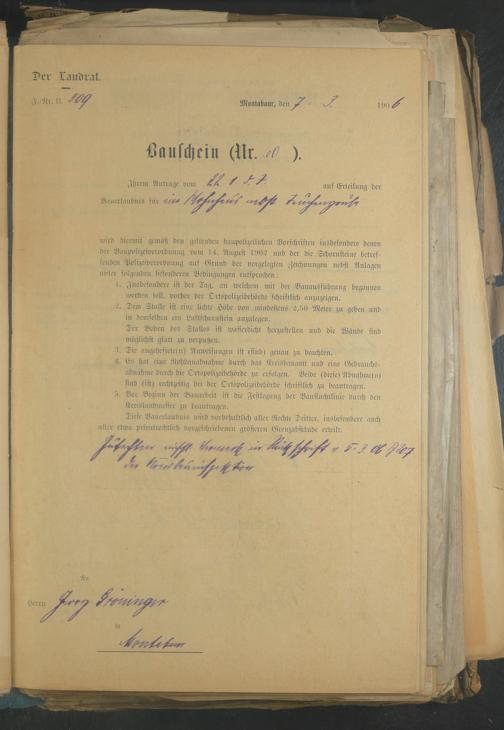 Der Landrat.
J.-Nr. II. 809
Montabaur, den 7. 3. 1906
Bauschein (Nr. ).
Ihrem Antrage vom 22. auf Erteilung der
Bauerlaubnis für ein Wohnhaus nebst
wird hiermit gemäß den geltenden baupolizeilichen Vorschriften insbesondere denen
der Baupolizeiverordnung vom 14. August 1902 und der die Schornsteine betref-
fenden Polizeiverordnung auf Grund der vorgelegten Zeichnungen nebst Anlagen
unter folgenden besonderen Bedingungen entsprochen:
1. Insbesondere ist der Tag, an welchem mit der Bauausführung begonnen
werden soll, vorher der Ortspolizeibehörde schriftlich anzuzeigen.
2. Dem Stalle ist eine lichte Höhe von mindestens 2,50 Meter zu geben und
in demselben ein Luftschornstein anzulegen.
Der Boden des Stalles ist wasserdicht herzustellen und die Wände sind
möglichst glatt zu verputzen.
3. Die angeheftete(n) Anweisungen ist (sind) genau zu beachten.
4. Es hat eine Rohbauabnahme durch das Kreisbauamt und eine Gebrauchs-
abnahme durch die Ortspolizeibehörde zu erfolgen. Beide (diese) Abnahme(n)
sind (ist) rechtzeitig bei der Ortspolizeibehörde schriftlich zu beantragen.
5. Vor Beginn der Bauarbeit ist die Festlegung der Baufluchtlinie durch den
Kreislandmesser zu beantragen.
Diese Bauerlaubnis wird vorbehaltlich aller Rechte Dritter, insbesondere auch
aller etwa privatrechtlich vorgeschriebenen größeren Grenzabstände erteilt.
in 5. 3. 06
An
Herrn Georg Gröninger
in
Montabaur